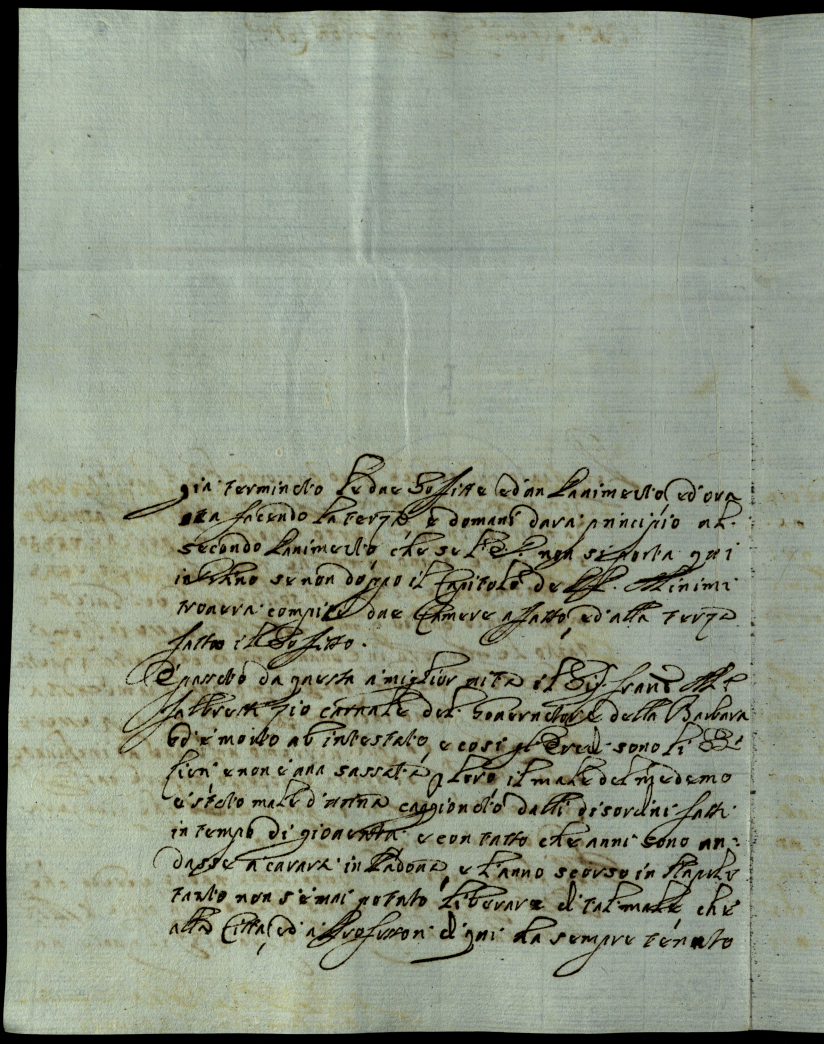 già terminato le due Soffitte ed'un Lanimento, ed'ora
sta facendo la terza e domani darà principio al
secondo Lanimento che se V.S. non si porta qui
in Urano se non doppo il Capitolo de PP. Minimi
trouerà compite due Camere affatto, ed'alla terza
fatto il Soffitto.
È passato da questa à miglior uita il Sig. Franc.
Zio carnale del Gouernatore della Barbara
ed'è morto ab intestato, e così gl'Eredi sono li
e non è una sassata p loro il male del medemo
è stato male d'orina caggionato dalli disordini fatti
in tempo di giouentù e con tutto che anni sono an-
dasse à curarsi in Padoua, e l'anno scorso in Napoli
tanto non s'è mai potuto liberare di tal male che
alla Città, ed à Professori di qui ha sempre tenuto